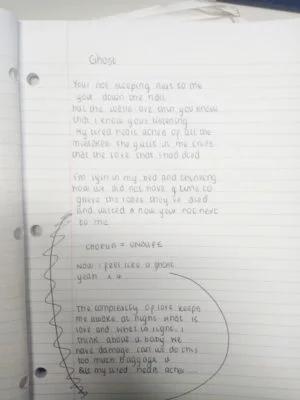 Ghost
Your not sleeping next to me
your down the hall
but the walls are thin you know
that I know your listening
My tired heart aches of all the
mistakes the guilt in me cries
that the love that I had died
I'm lyin in my bed and thinking
how we did not have time to
grieve the loves they've died
and wasted now your not next
to me
CHORUS = UKULELE
Now I feel like a ghost
yeah
The complexity of love keeps
me awake at night what is
love and what is right. I
think about a body we
have damage can we do this
too much Baggage
But my tired heart aches